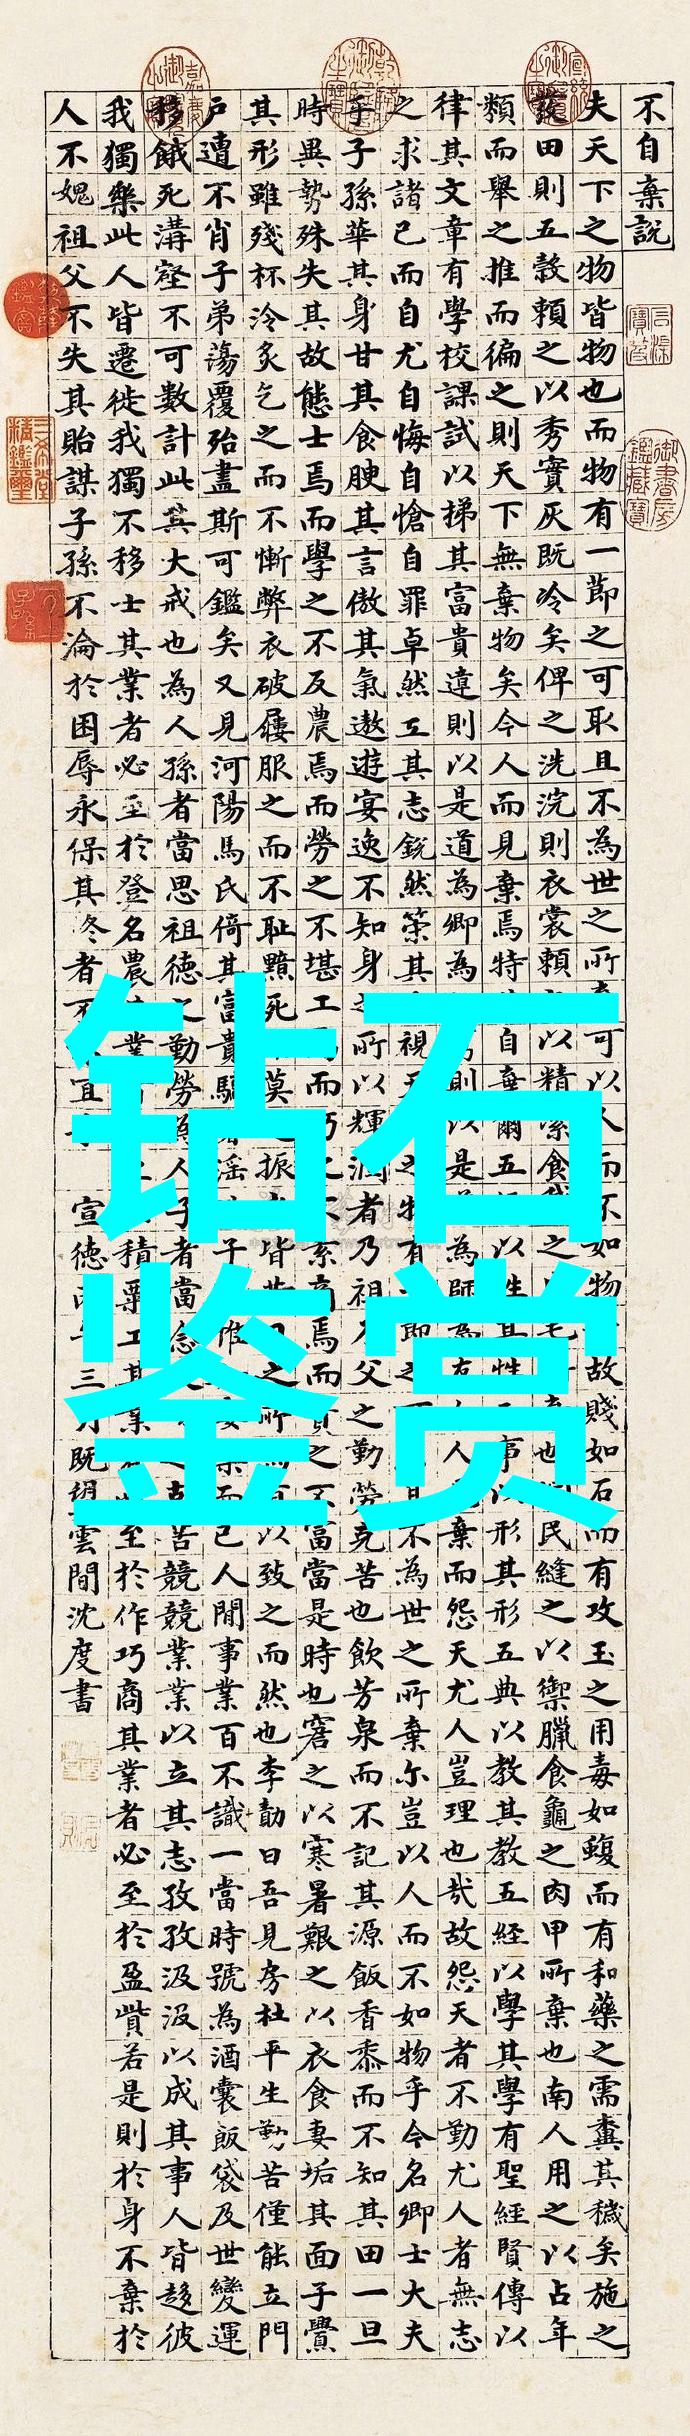 不自棄說
夫天下之物皆物也而物有一節之可取且不為世之所可以人而不如物故賤如石而有攻玉之用毒如蝮而有和藥之需糞其穢矣施之
發田則五穀賴之以秀實灰既冷矣俾之洗浣則衣裳賴以精潔食之也民縫之以禦臘食龜之肉甲所棄也南人用之以占年
類而舉之推而徧之則天下無棄物矣今人而見棄焉特自棄爾五以性其性事以形其形五典以教其教五經以學其學有聖經賢傳以
律其文章有學校課試以梯其富貴達則以是道為卿為則以是為師為友人棄而怨天尤人豈理也哉故怨天者不勤尤人者無志
之求諸己而自尤自悔自愴自罪卓然立其志銳然策其視天之物有節之不為世之所棄尔豈以人而不如物乎今名卿士大夫
乎子孫華其身甘其食腴其言傲其氣遨遊宴逸不知身之所以輝潤者乃祖乃父之勤勞克苦也飲芳泉而不記其源飯香黍而不知其田一旦
時異勢殊失其故態士焉而學之不及農焉而勞之不堪工焉而巧之不素商焉而資之不富當是時也窘之以寒暑艱之以衣食妻垢其面子釁
其形雖殘杯冷炙乞之而不慚弊衣破屨服之而不恥黯死莫振皆之所以致之而然也李勣曰吾見房杜平生勤苦僅能立門
戶遭不肖子弟蕩覆殆盡斯可鑑矣又見河陽馬氏倚其富貴驕淫子惟樂而已人間事業百不識一當時號為酒囊飯袋及世變運
移餓死溝壑不可數計此其大戒也為人孫者當思祖德之勤勞為人子者當念克苦競競業業以立其志孜孜汲汲以成其事人皆趍彼
我獨樂此人皆遷徙我獨不移士其業者必至於登名農業積粟工其業至於作巧商其業者必至於盈貲若是則於身不棄於
人不媿祖父不失其貽謀子孫不淪於困辱永保其終者不宜
宣德三月既望雲間沈度書
钻石
鉴赏